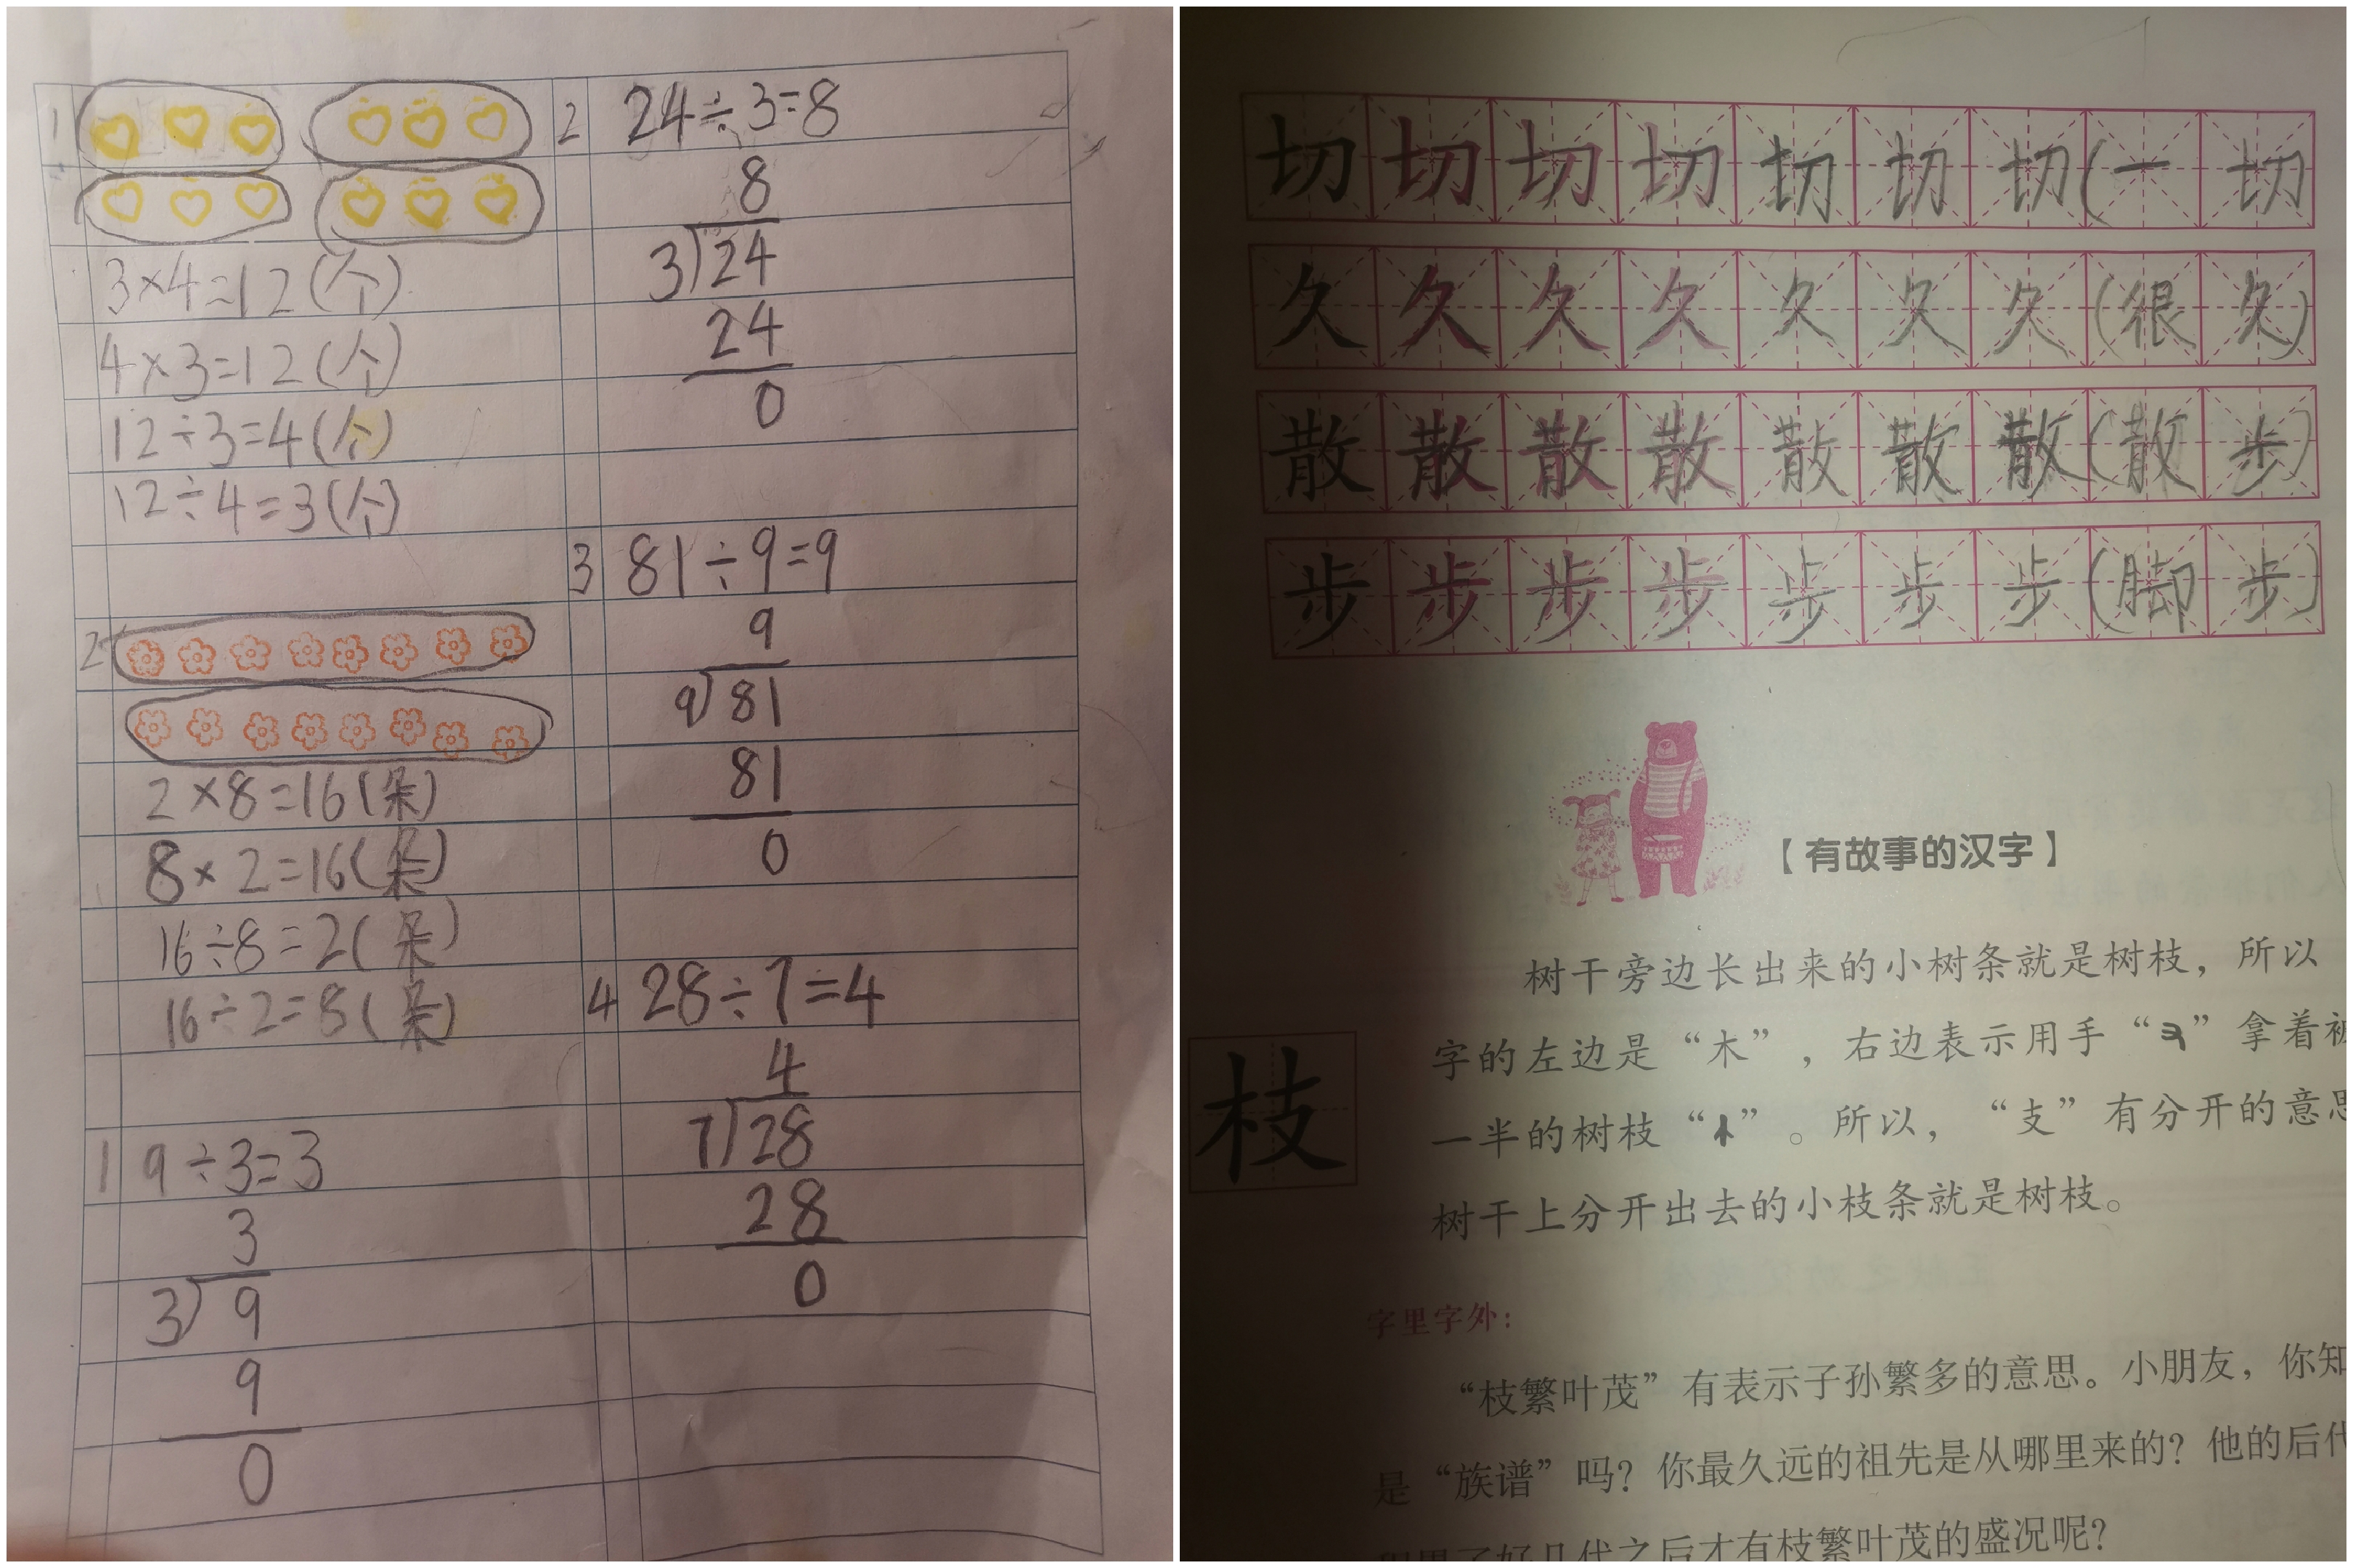 1
3×4=12(个)
4×3=12(个)
12÷3=4(个)
12÷4=3(个)
2
2×8=16(朵)
8×2=16(朵)
16÷8=2(朵)
16÷2=8(朵)
1 9÷3=3
3
3 9
9
0
2 24÷3=8
8
3 24
24
0
3 81÷9=9
9
9 81
81
0
4 28÷7=4
4
7 28
28
0
切切切切切切切(一切
久久久久久久久(很久)
散散散散散散散(散步)
步步步步步步步(脚步)
【有故事的汉字】
枝
树干旁边长出来的小树条就是树枝，所以
字的左边是“木”，右边表示用手“”拿着被
一半的树枝“”。所以，“支”有分开的意思
树干上分开出去的小枝条就是树枝。
字里字外：
“枝繁叶茂”有表示子孙繁多的意思。小朋友，你知
是“族谱”吗？你最久远的祖先是从哪里来的？他的后代
好几代之后才有枝繁叶茂的盛况呢？